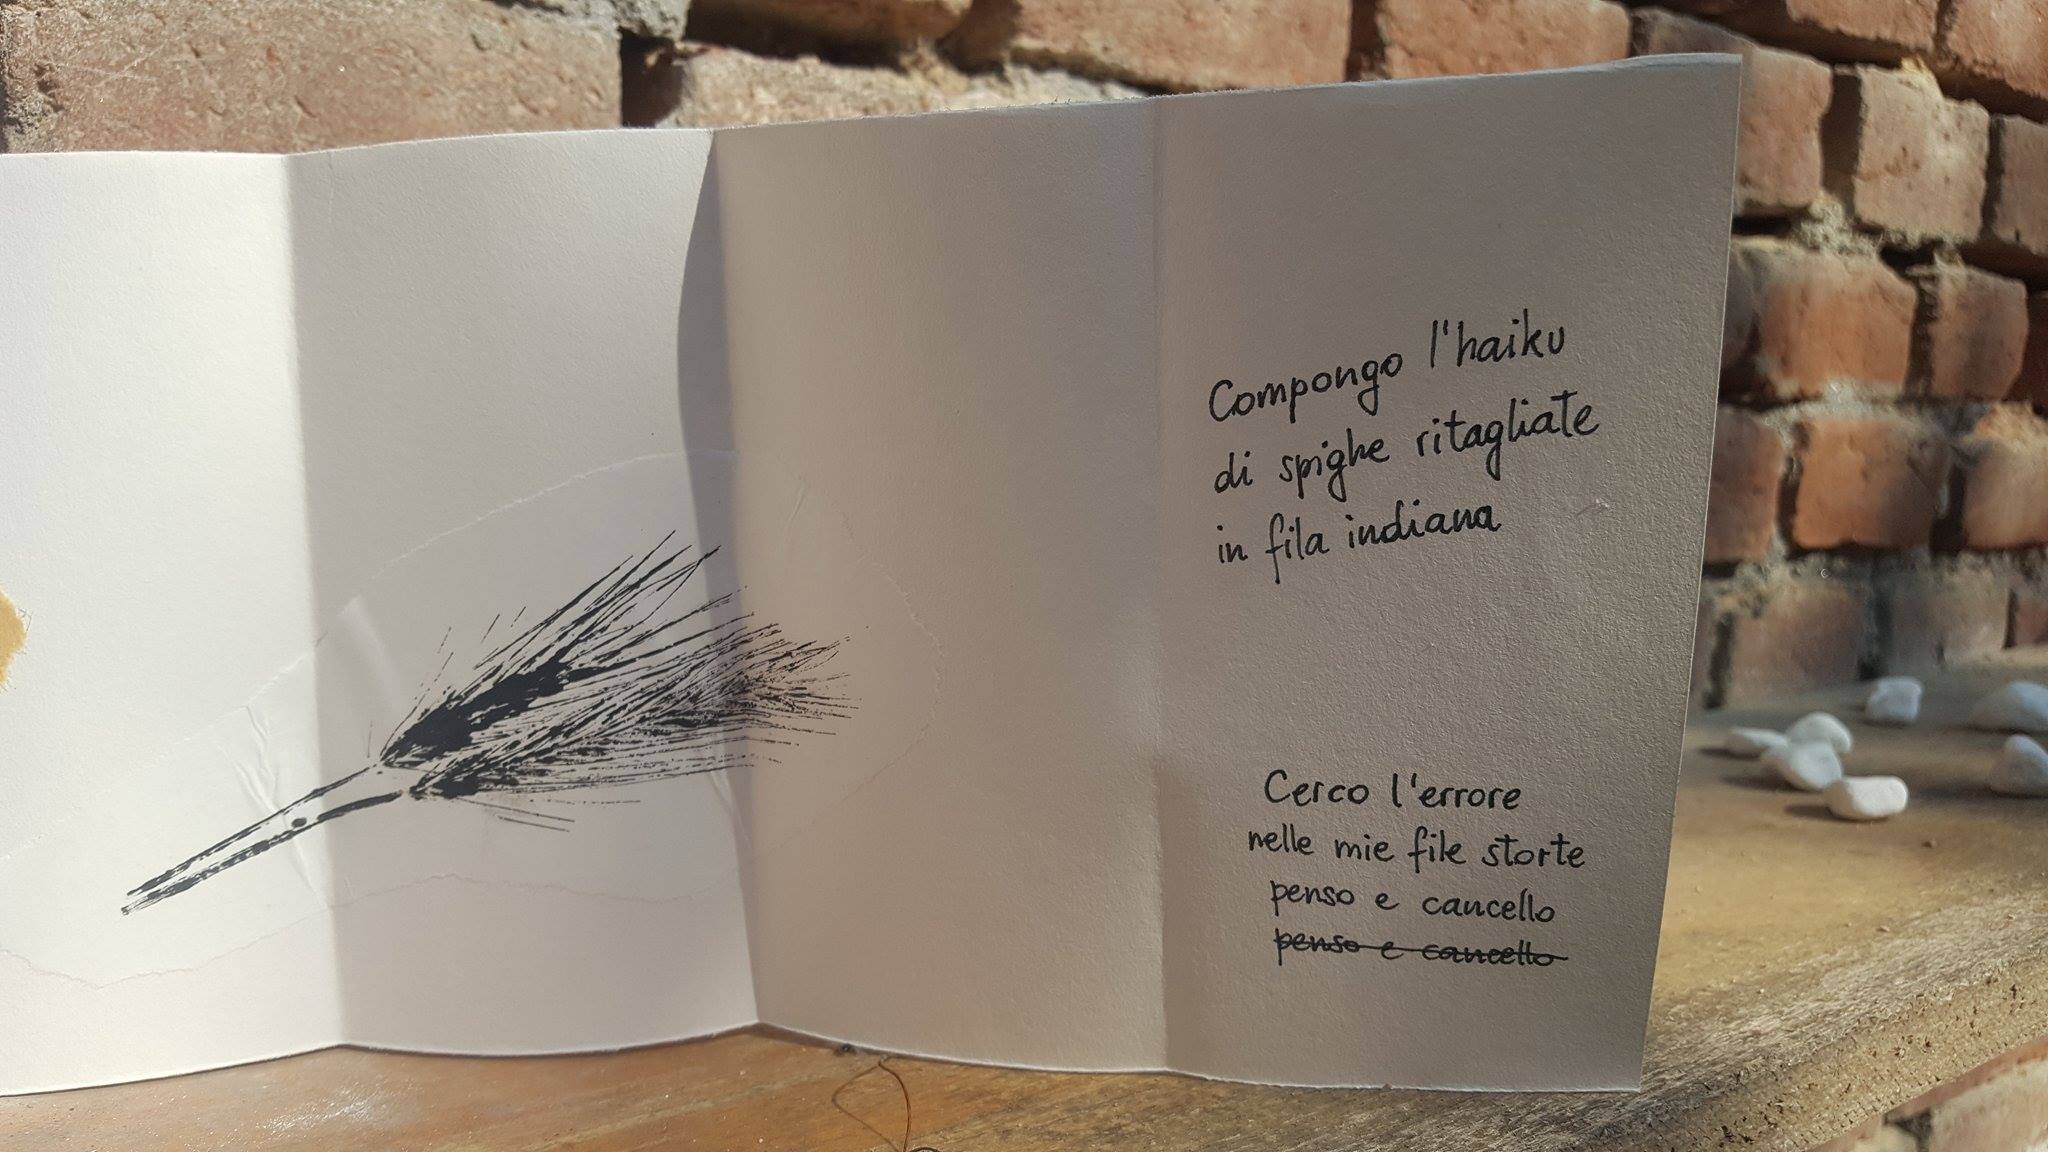 Compongo l'haiku
di spighe ritagliate
in fila indiana
Cerco l'errore
nelle mie file storte
penso e cancello
penso e cancello